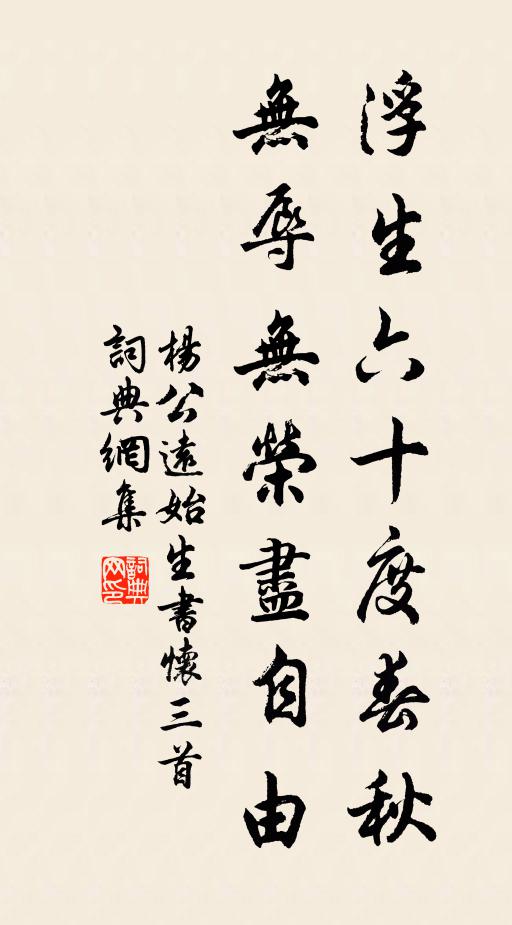 浮生六十度春秋
無辱無榮盡自由
楊公遠始生書懷三首
詞典網集
詞典网印